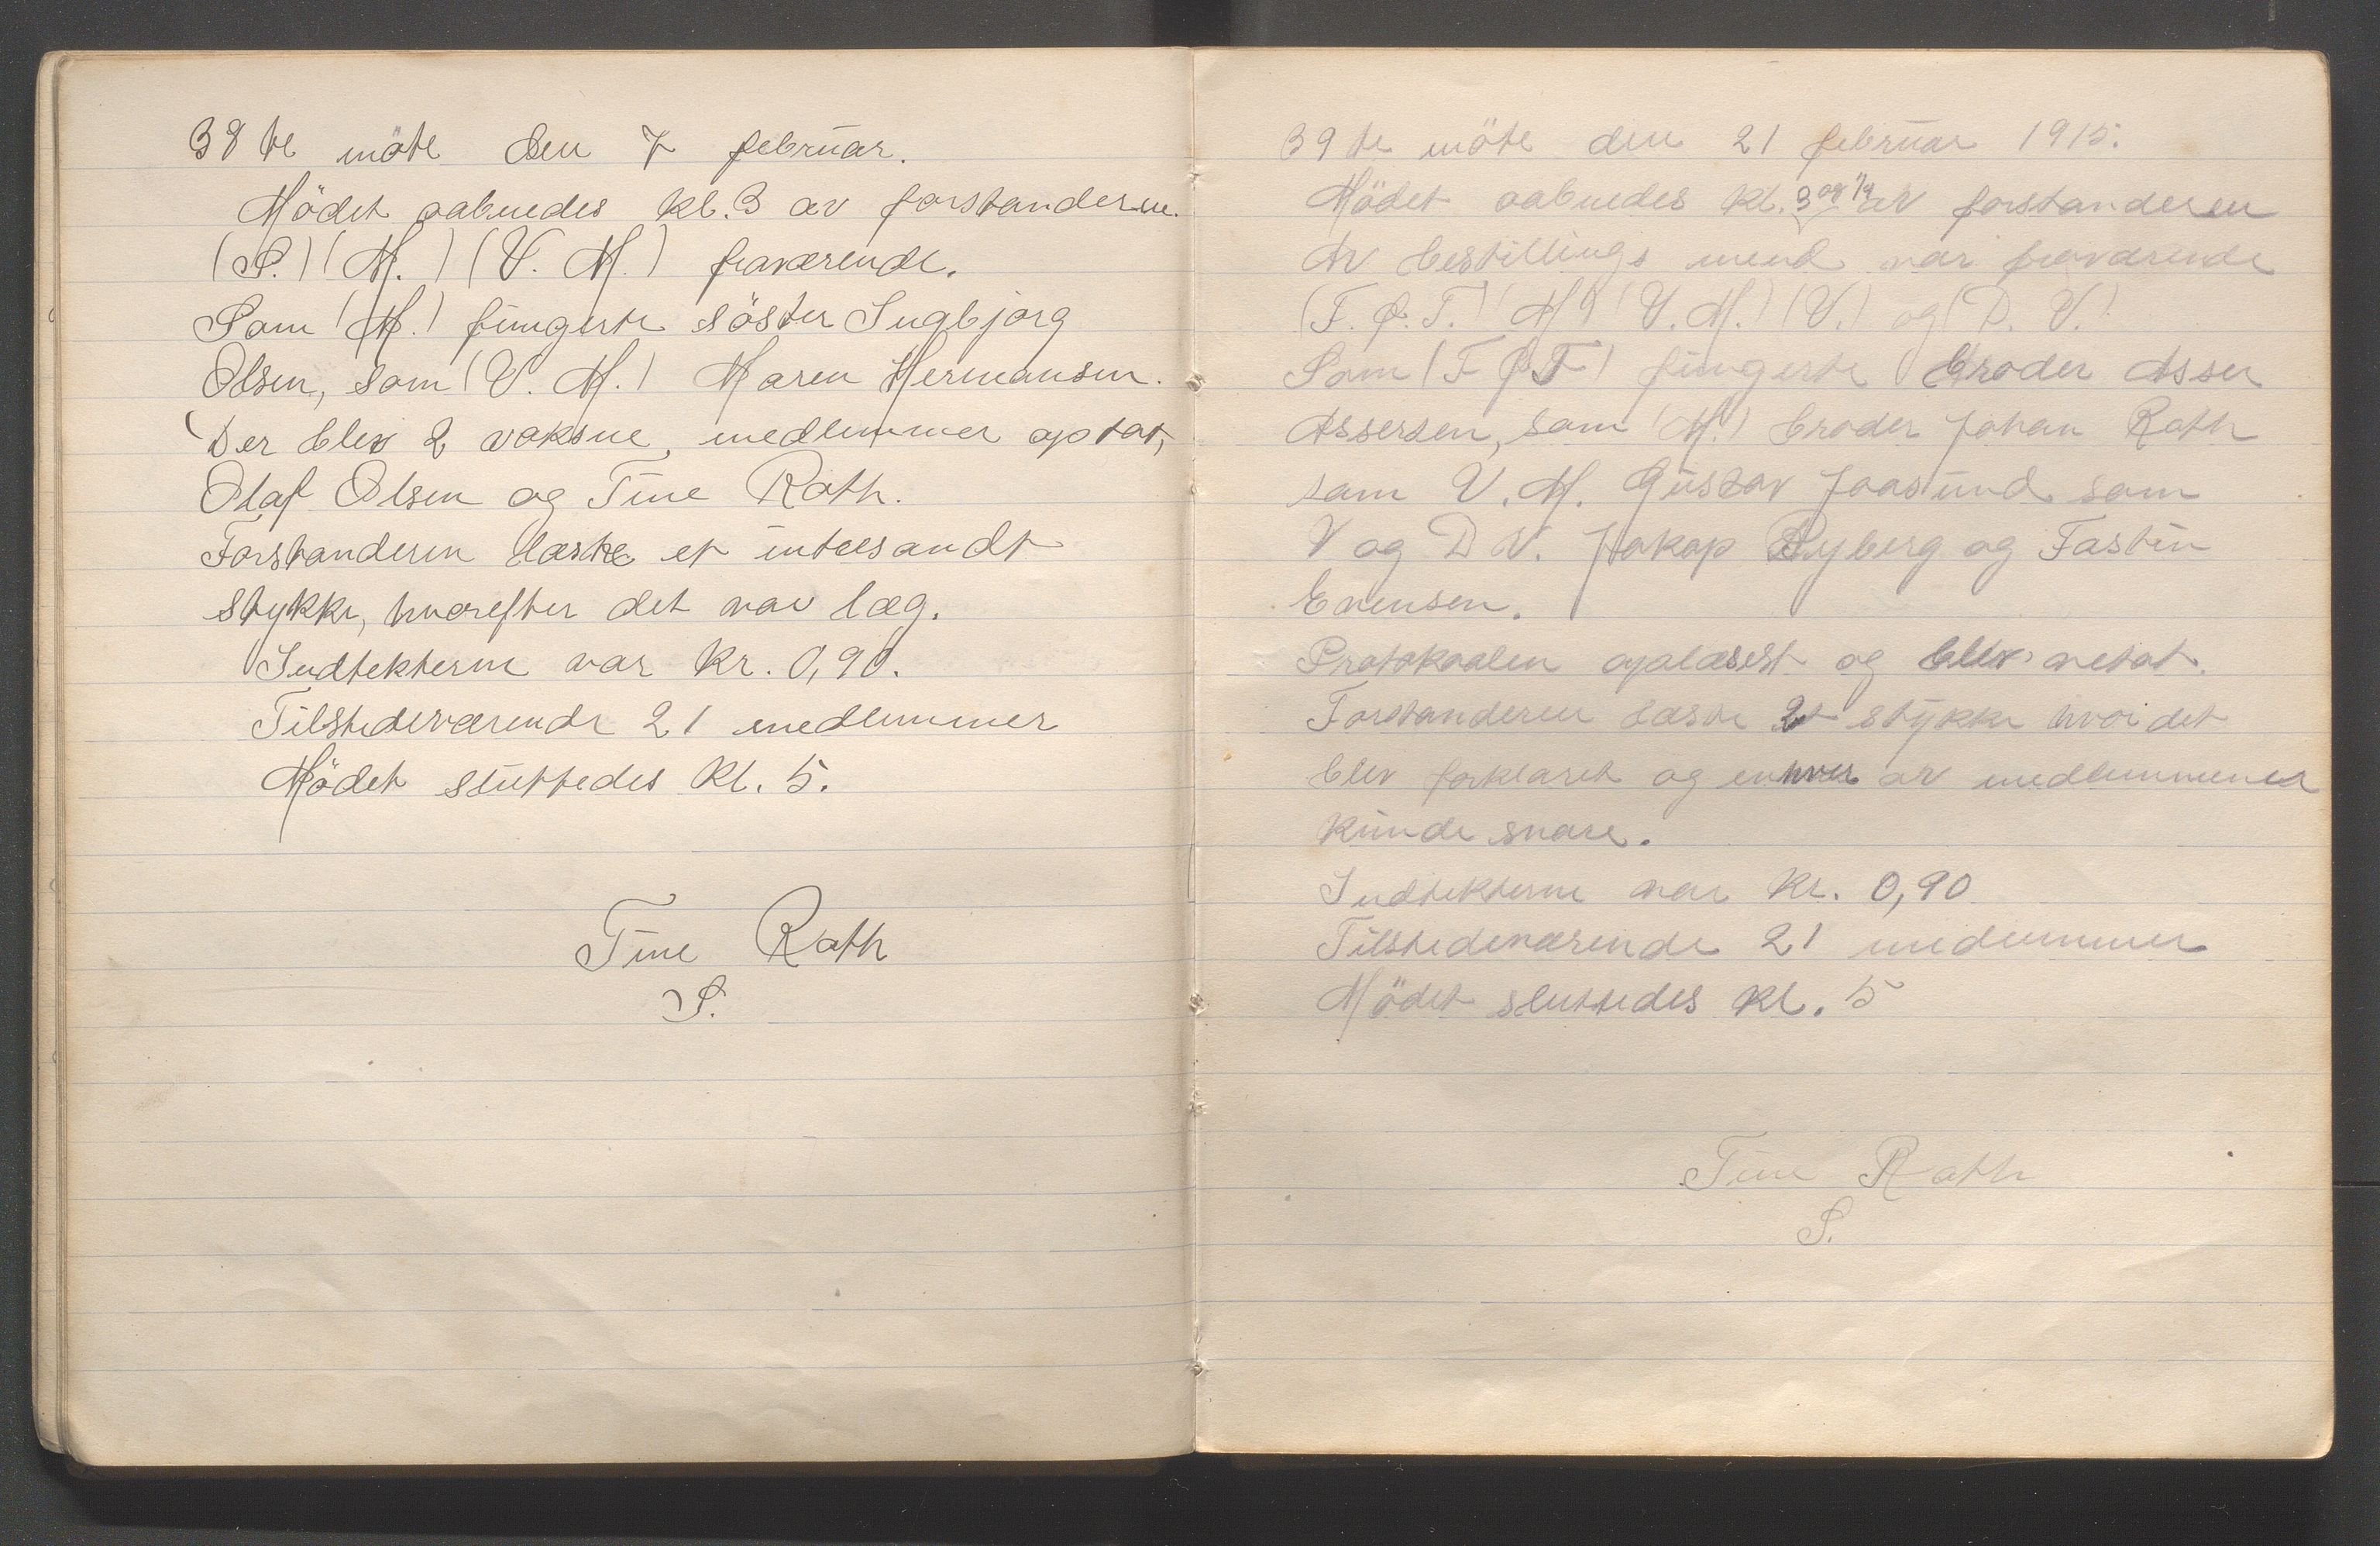 38te möte den 7 februar.
Mödet aabnedes kl. 3 av forstanderen.
(S.) (M.) (V. M.) fraværende.
Som (M.) fungerte söster Ingbjorg
Olsen, som (V. M.) Maren Hermansen.
Der blev 2 voksne medlemmer optat,
Olaf Olsen og Tine Rath.
Forstanderen læste et intresandt
stykke, hvorefter det var læg.
Indtekterne var kr. 0,90.
Tilstedeværende 21 medlemmer
Mödet sluttedes kl. 5.
Tine Rath
S.
39te möte den 21 februar 1915.
Mödet aabnedes kl. 3 og 1/4 av forstanderen
Av bestillings mend var fraværende
(F. F. T.) (M) (V. M.) (V.) og (D. V.)
Som (F F T) fungerte broder Asser
Assersen, som (M.) broder Johan Rath
som V. M. Gustav Jaasund som
V og D V. Jakop Ryberg og Tastin
Evensen.
Protokoalen oplæsest og blev vetat.
Forstanderen læste et stykke hvor det
blev forklaret og enhver av medlemmener
kunde svare.
Indtekterne var kr. 0,90
Tilstedeværende 21 medlemmer
Mödet sluttedes kl. 5
Tine Rath
S.